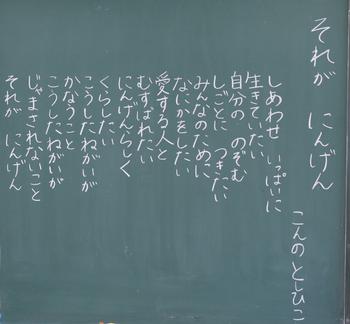 それが　にんげん
こんの としひこ
しあわせ　いっぱいに
生きていたい
自分の　のぞむ
しごとに　つきたい
みんなのために
なにかをしたい
愛する人と
むすばれたい
にんげんらしく
くらしたい
こうしたねがいが
かなうこと
こうしたねがいが
じゃまされないこと
それが　にんげん